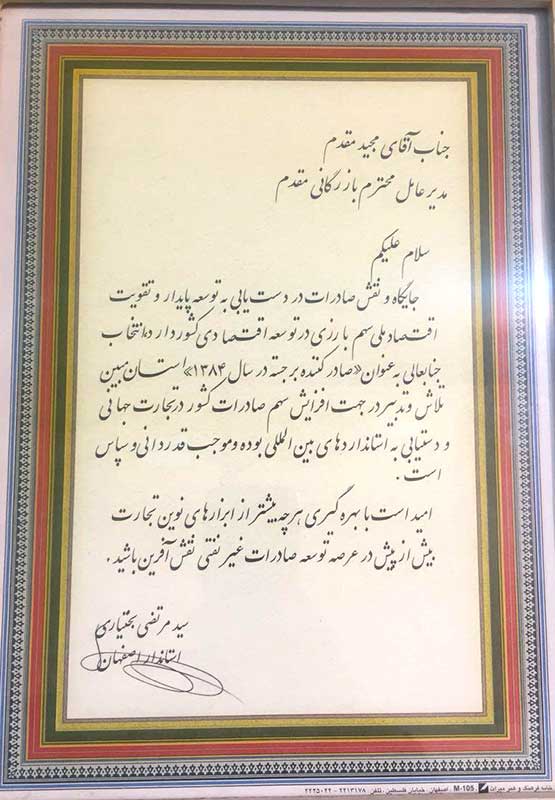 جناب آقای مجید مقدم
مدیر عامل محترم بازرگانی مقدم
سلام علیکم
جایگاه و نقش صادرات در دست یابی به توسعه پایدار و تقویت
اقتصاد ملی سهم بارزی در توسعه اقتصادی کشور دارد، انتخاب
جنابعالی به عنوان «صادر کننده برجسته در سال ۱۳۸۴» استان مبین
تلاش و تدبیر در جهت افزایش سهم صادرات کشور در تجارت جهانی
و دستیابی به استانداردهای بین المللی بوده و موجب قدردانی و سپاس
است .
امید است با بهره گیری هر چه بیشتر از ابزارهای نوین تجارت
بیش از پیش در عرصه توسعه صادرات غیر نفتی نقش آفرین باشید .
سید مرتضی بختیاری
استاندار اصفهان
خانه فرهنگ و هنر میراث M-105 . اصفهان . خیابان فلسطین . تلفن : ۲۲۱۳۱۷۸ - ۲۲۳۵۰۲۲